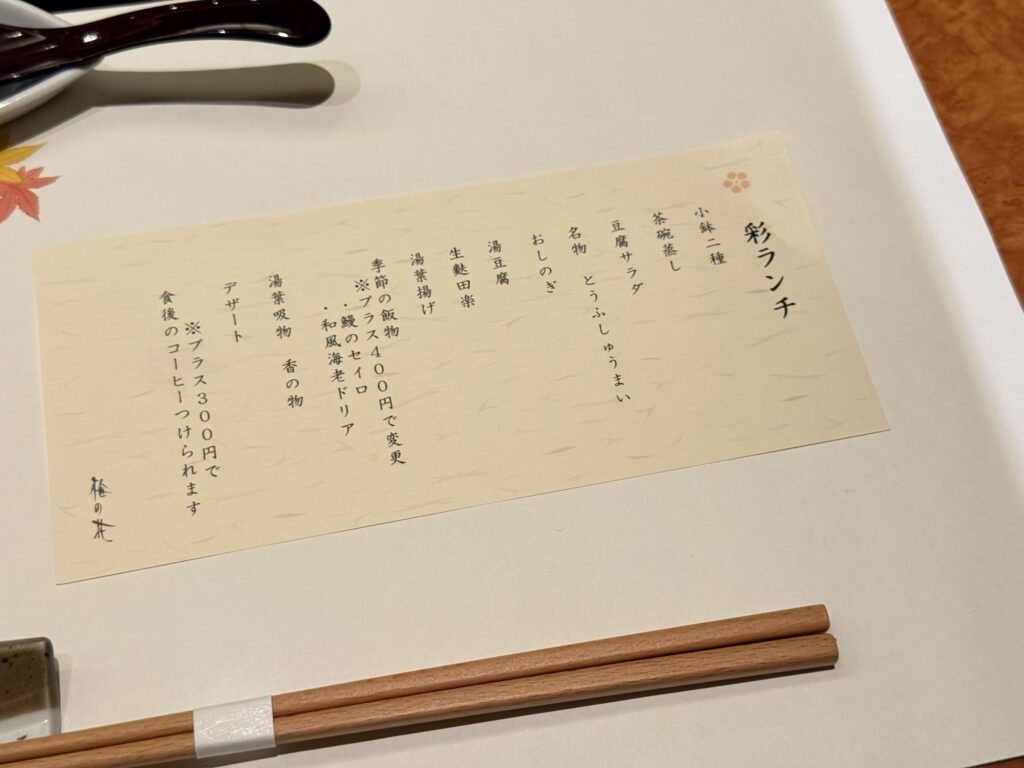 彩ランチ
小鉢二種
茶碗蒸し
豆腐サラダ
名物　とうふしゅうまい
おしのぎ
湯豆腐
生麩田楽
湯葉揚げ
季節の飯物
※プラス４００円で変更
・鰻のセイロ
・和風海老ドリア
湯葉吸物　香の物
デザート
※プラス３００円で
食後のコーヒーつけられます
梅の花